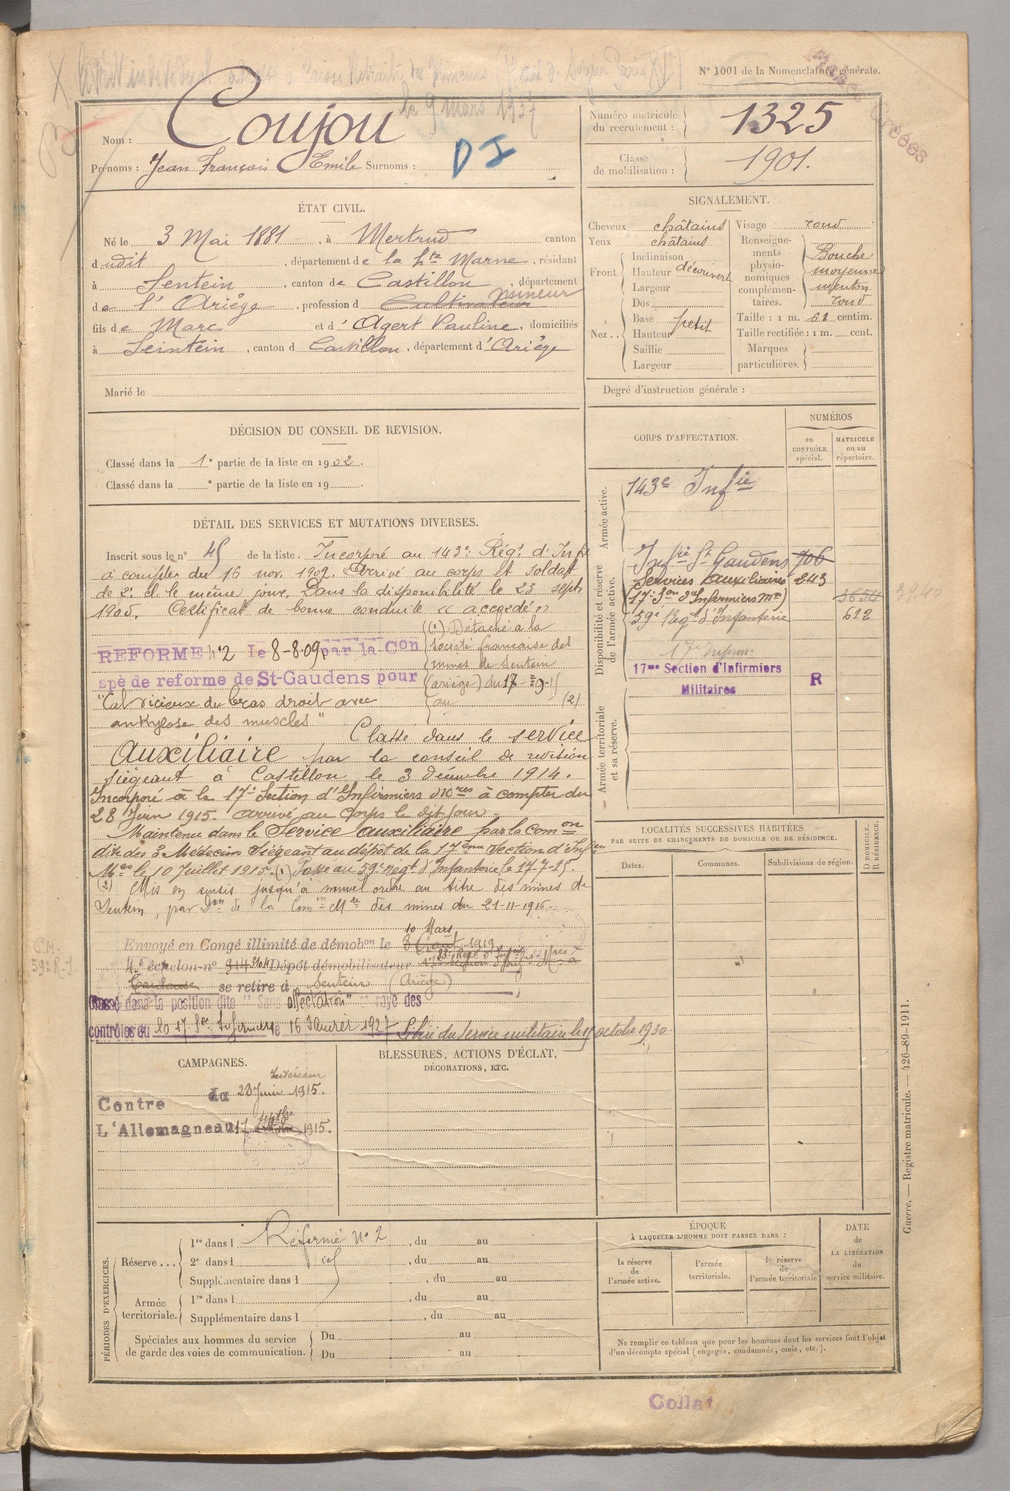 N° 1001 de la Nomenclature générale.
le 9 mars 1937
Nom : Coujou
Prénoms : Jean François Emile Surnoms :
D I
Numéro matricule du recrutement : 1325
Classe de mobilisation : 1901.
ÉTAT CIVIL.
Né le 3 Mai 1881, à Mertrud canton
dudit, département de la Hte Marne, résidant
à Sentein, canton de Castillon, département
de l'Ariège, profession de Cultivateur mineur
fils de Marc et d'Agert Pauline, domiciliés
à Seintein, canton d Castillon, département d'Ariège
Marié le
SIGNALEMENT.
Cheveux châtains
Yeux châtains
Front Inclinaison
Hauteur découvert
Largeur
Nez Dos
Base petit
Hauteur
Saillie
Largeur
Visage rond
Renseignements physionomiques complémentaires. Bouche moyenne menton rond
Taille : 1 m. 61 centim.
Taille rectifiée : 1 m. cent.
Marques particulières.
Degré d'instruction générale :
DÉCISION DU CONSEIL DE REVISION.
Classé dans la 1e partie de la liste en 1902.
Classé dans la e partie de la liste en 19
DÉTAIL DES SERVICES ET MUTATIONS DIVERSES.
Inscrit sous le n° 45 de la liste. Incorporé au 143e Régt d'Infie
à compter du 16 nov. 1902. Arrivé au corps et soldat
de 2e cl. le même jour. Dans la disponibilité le 23 septe
1905. Certificat de bonne conduite « accordé »
REFORME N°2 le 8-8-09 par la Con
spé de reforme de St-Gaudens pour
"Cal vicieux du bras droit avec
ankylose des muscles"
(1) Détaché à la
société française des
mines de Sentein
(ariège) du 17-9-15
au (2)
Classé dans le service
Auxiliaire par le conseil de revision
siégeant à Castillon le 3 décembre 1914.
Incorporé à la 17e Section d'Infirmiers Mres à compter du
28 Juin 1915. arrivé au corps le dit jour.
Maintenu dans le Service auxiliaire par la Comon
dite des 3 Médecins siégeant au dépôt de la 17ème Section d'Infers
Mres le 10 Juillet 1915. (1) Passé au 59e régt d'Infanterie le 17-7-15.
(2) Mis en sursis jusqu'à nouvel ordre au titre des mines de
Sentein, par Don de la Comon Mle des mines du 21-11-1916.
Envoyé en Congé illimité de démobon le 10 Mars 1919
4e échelon n° 314 Dépôt démobilisateur
Toulouse se retire à Sentein (Ariège)
Classé dans la position dite "Sans affectation" rayé des
contrôles du 17 Son Infirmiers le 15 Janvier 1927 Libéré du service militaire le 15 octobre 1930
CORPS D'AFFECTATION.
NUMÉROS
au CONTRÔLE spécial.
MATRICULE ou au répertoire.
Armée active.
143e Infie
Disponibilité et réserve de l'armée active.
Infie St Gaudens 706
Services auxiliaires 243
(17e Son d'Infirmiers Mre)
59e Régt d'Infanterie 622
17e Infirm.
17me Section d'Infirmiers
Militaires R
Armée territoriale et sa réserve.
LOCALITÉS SUCCESSIVES HABITÉES
PAR SUITE DE CHANGEMENTS DE DOMICILE OU DE RÉSIDENCE.
Dates.
Communes.
Subdivisions de région.
D DOMICILE. R RÉSIDENCE.
CAMPAGNES.
Intérieur
Contre du 28 Juin 1915.
L'Allemagne au 17 septbre 1915.
BLESSURES, ACTIONS D'ÉCLAT,
DÉCORATIONS, ETC.
PÉRIODES D'EXERCICES.
Réserve ... 1re dans l Réformé N° 2, du au
2e dans l, du au
Supplémentaire dans l, du au
Armée territoriale. 1re dans l, du au
Supplémentaire dans l, du au
Spéciales aux hommes du service de garde des voies de communication. Du au
Du au
ÉPOQUE
À LAQUELLE L'HOMME DOIT PASSER DANS :
la réserve de l'armée active.
l'armée territoriale.
la réserve de l'armée territoriale
DATE de LA LIBÉRATION du service militaire.
Ne remplir ce tableau que pour les hommes dont les services font l'objet
d'un décompte spécial (engagés, condamnés, omis, etc.).
Guerre. — Registre matricule. — 426-89-1911.
Collat